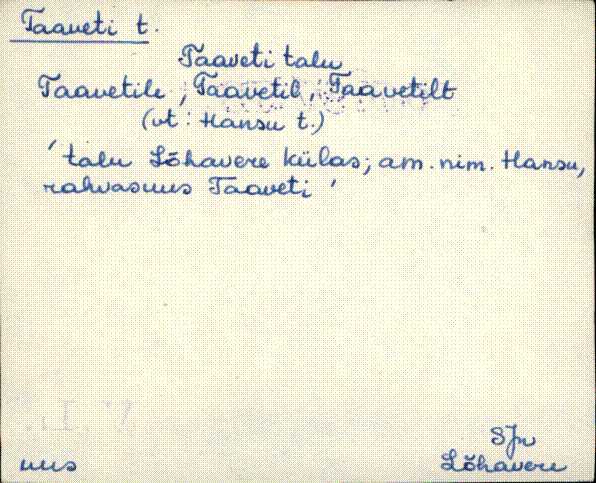 Taaveti t.
Taaveti talu
Taavetile, Taavetil, Taavetilt
(vt: Hansu t.)
'talu Lõhavere külas; am. nim. Hansu,
rahvasuus Taaveti'
SJn
uus
Lõhavere